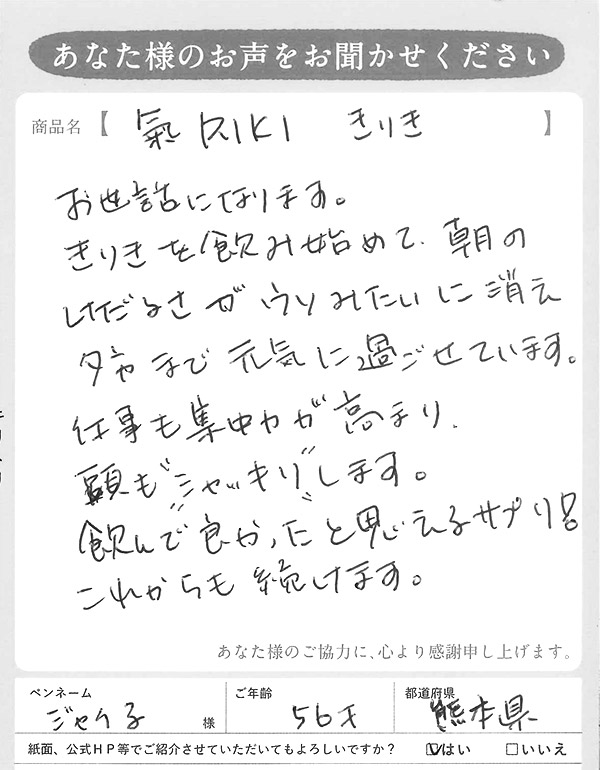 あなた様のお声をお聞かせください
商品名【 氣 RIKI きりき 】
お世話になります。
きりきを飲み始めて、朝の
けだるさがウソみたいに消え
夕方まで元気に過ごせています。
仕事も集中力が高まり、
顔も"シャッキリ"します。
飲んで良かったと思えるサプリ!!
これからも続けます。
あなた様のご協力に、心より感謝申し上げます。
ペンネーム ジャケ子 様 ご年齢 56才 都道府県 熊本県
紙面、公式HP等でご紹介させていただいてもよろしいですか? ☑はい □いいえ